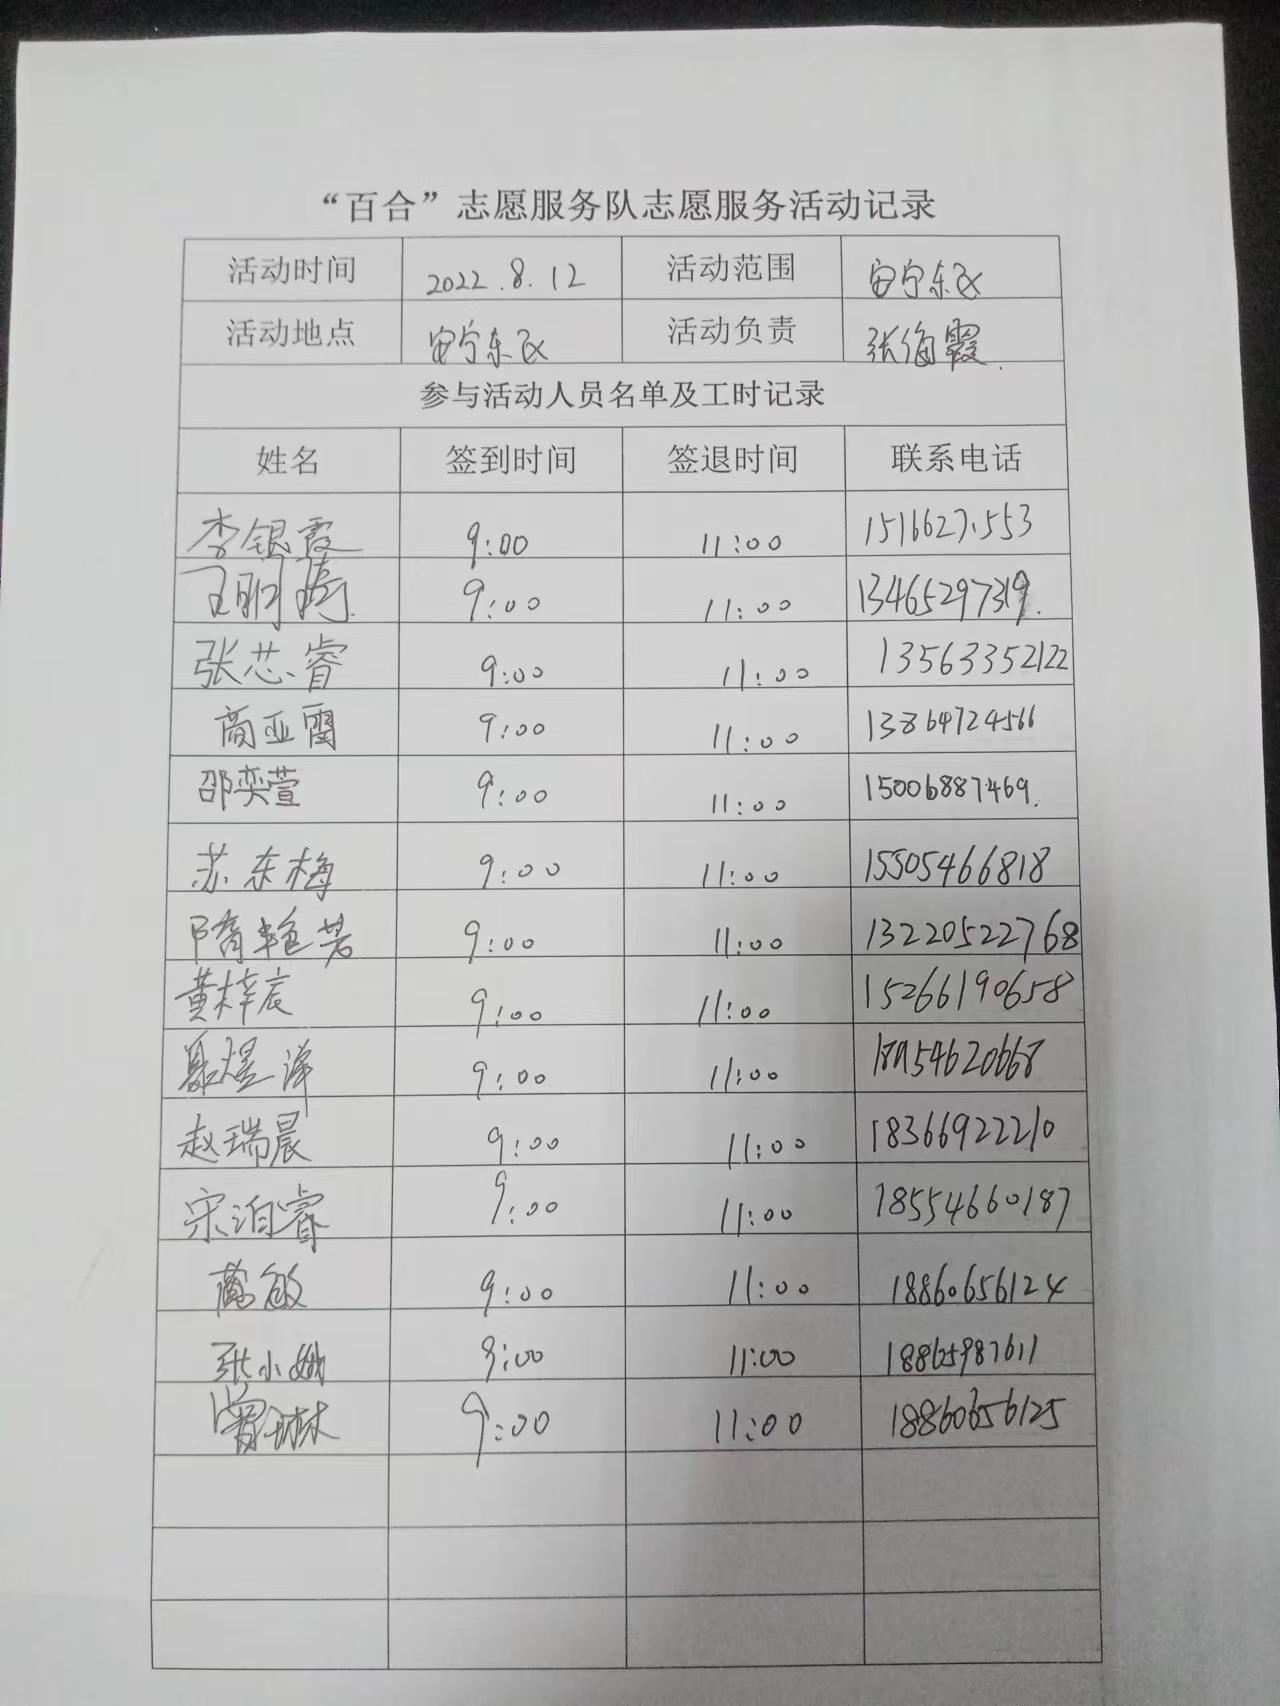 “百合”志愿服务队志愿服务活动记录
活动时间 2022.8.12 活动范围 安宁东区
活动地点 安宁东区 活动负责 张海霞.
参与活动人员名单及工时记录
姓名 签到时间 签退时间 联系电话
李银霞 9:00 11:00
9:00 11:00 13465297319.
张芯睿 9:00 11:00 13563352122
商亚雷 9:00 11:00 13864724566
邵奕萱 9:00 11:00 15006887469.
苏东梅 9:00 11:00 15505466818
隋艳芳 9:00 11:00 13220522768
黄梓辰 9:00 11:00 15266190658
聂煜洋 9:00 11:00 18954620668
赵瑞晨 9:00 11:00 18366922210
宋泊睿 9:00 11:00 18554660187
敏 9:00 11:00 18860656124
张小娥 9:00 11:00 18865987611
曾琳 9:00 11:00 18860656125